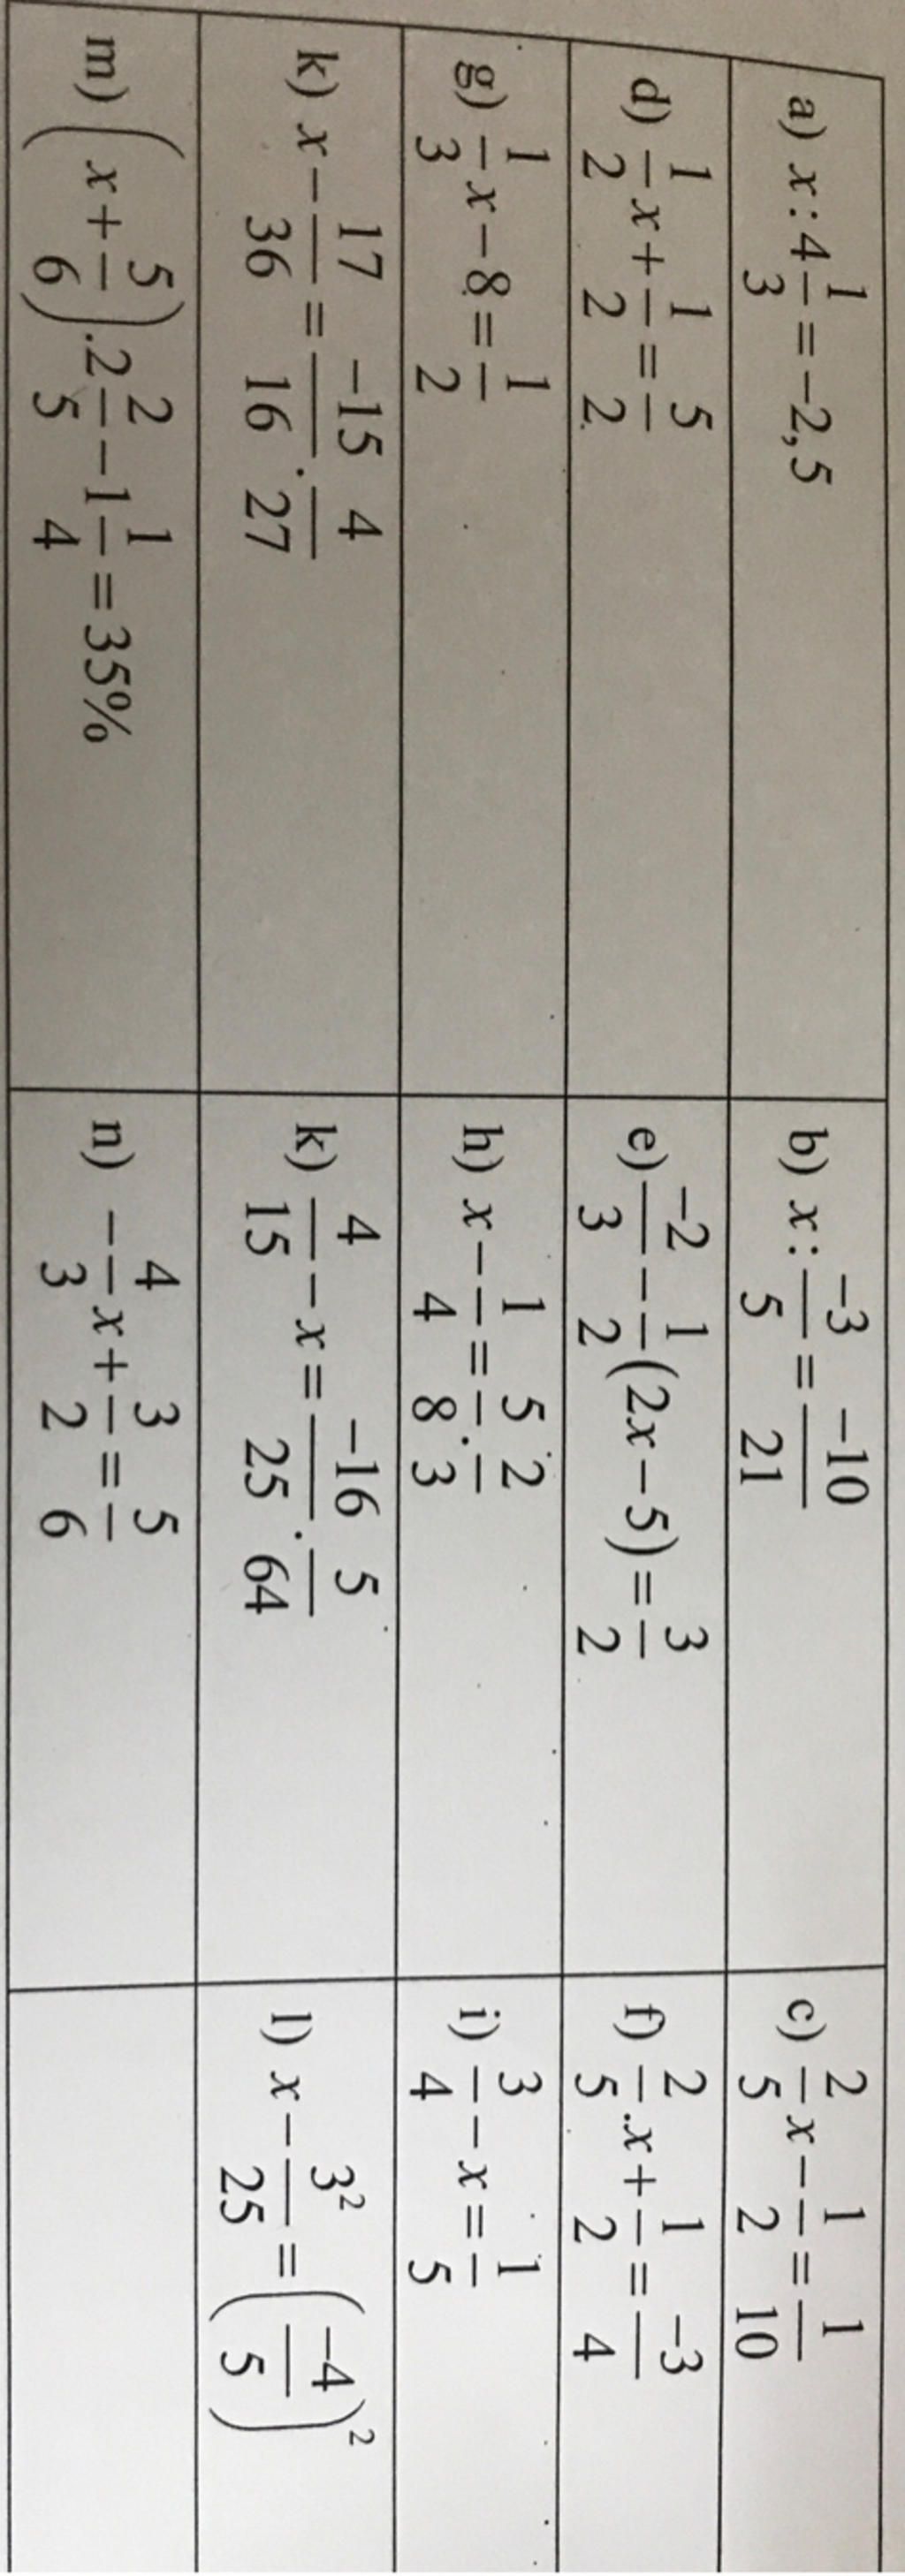 a) x : 4 1/3 = −2,5
b) x : −3/5 = −10/21
c) 2/5 x − 1/2 = 1/10
d) 1/2 x + 1/2 = 5/2
e) −2/3 − 1/2 (2x − 5) = 3/2
f) 2/5 . x + 1/2 = −3/4
g) 1/3 x − 8 = 1/2
h) x − 1/4 = 5/8 . 2/3
i) 3/4 − x = 1/5
k) x − 17/36 = −15/16 . 4/27
k) 4/15 − x = −16/25 . 5/64
l) x − 3²/25 = (−4/5)²
m) (x + 5/6) . 2 2/5 − 1 1/4 = 35%
n) − 4/3 x + 3/2 = 5/6